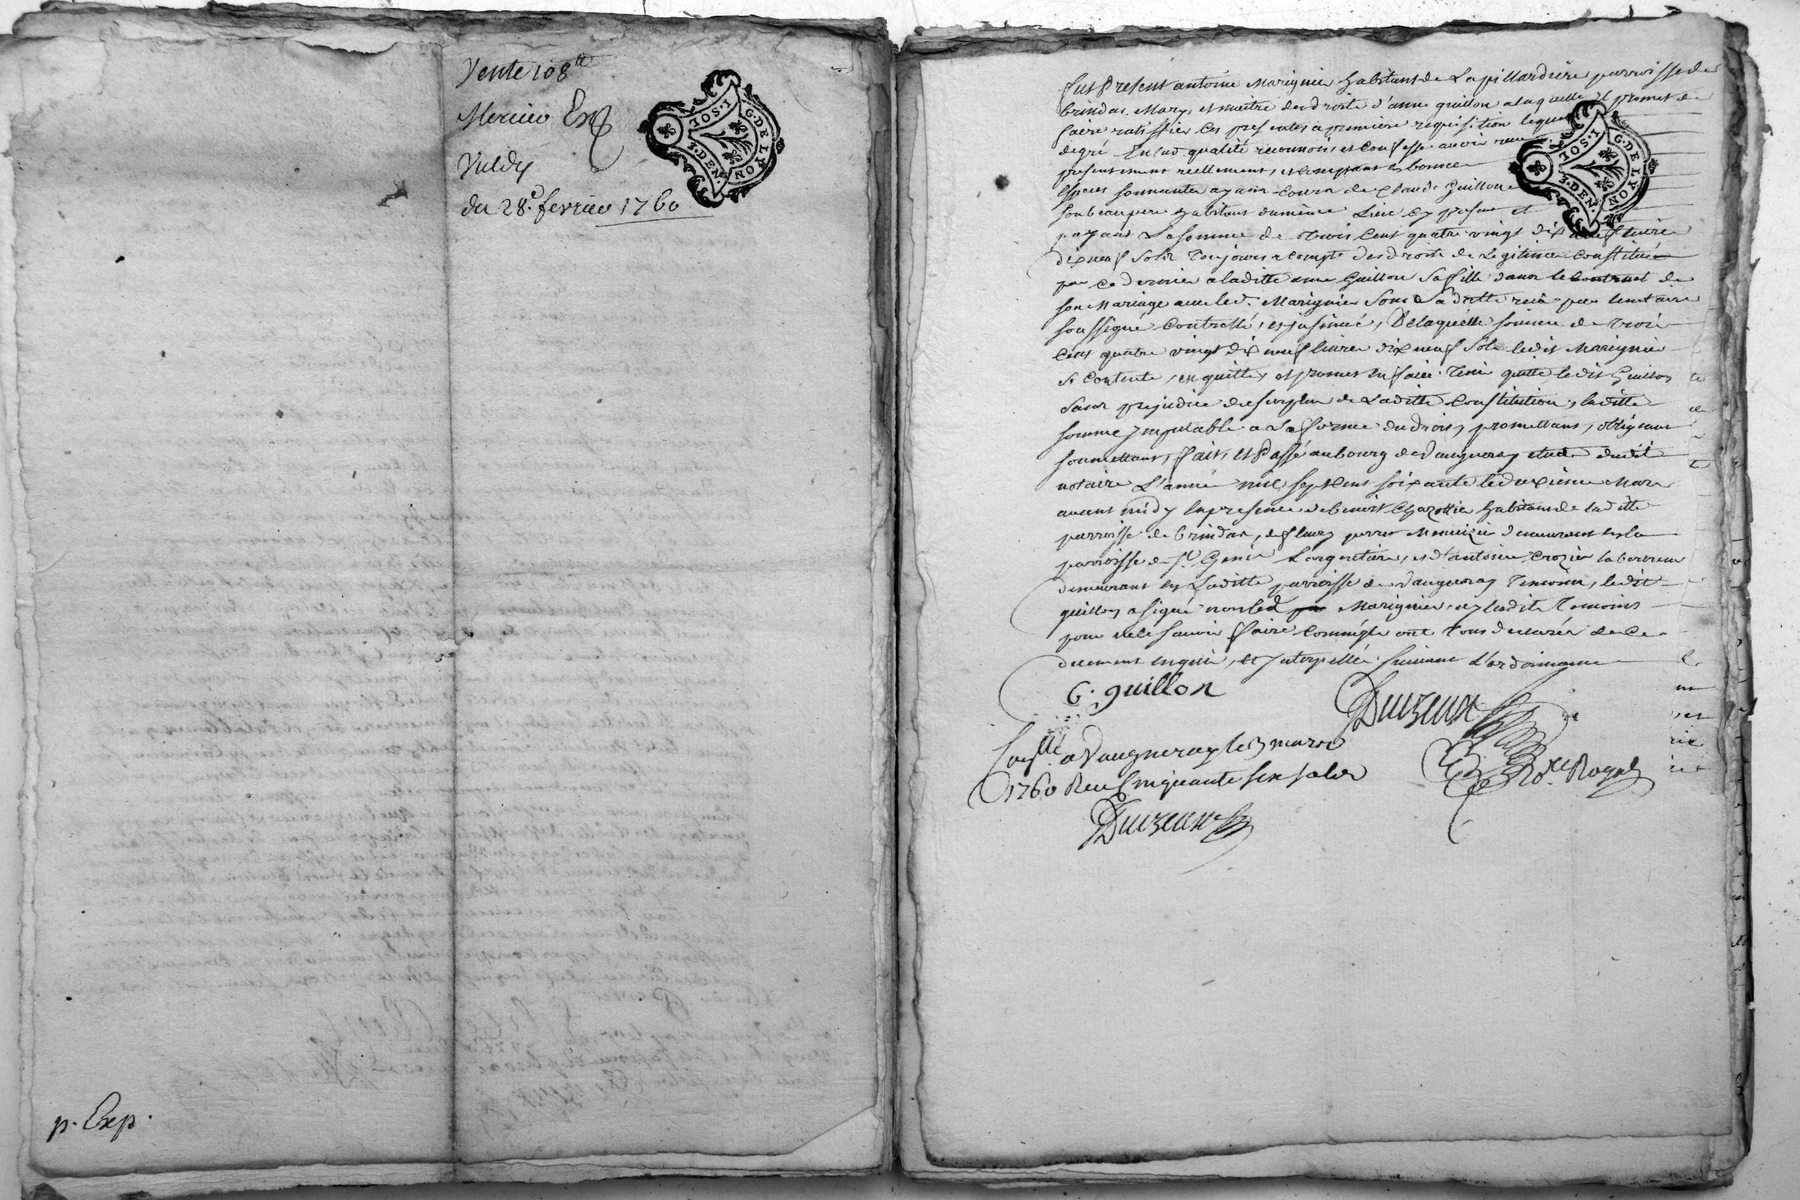 Vente 108ᵗᵗ
Mercier Exp
Valdy
du 28ᵉ. fevrier 1760
G. DE LYON
1. SOL.
F. DEN.
p. Exp.
Fut Present antoine Marignier habitant de Lapillardiere parroisse de
brindas, Mary, et maitre des droits d'anne guillon a laquelle il promet de
faire ratiffier ces presentes a premiere requisition lequel
de gré En lad. qualité reconnoit, et confesse avoir reçu
presentement reellement, et comptant en bonnes
especes sonnantes ayant cours de Claude Guillon
son beau pere habitant du même Lieu cy present et
payant La somme de trois Cent quatre vingt dix neuf livres
dix neuf sols Toujours a compte des droits de Legitime constitués
par Ce dernier a laditte anne Guillon sa fille dans le contract de
son Mariage avec led. Marignier sous sa datte reçu par le notaire
soussigné, Controllé, et insinué, De laquelle somme de trois
Cens quatre vingt dix neuf livres dix neuf sols ledit Marignier
se contente, en quitte, et promet en faire Tenir quitte ledit Guillon
sans prejudice du surplus de Laditte Constitution, laditte
somme jmputable a La forme du droit, promettant, obligeant
soumettant, fait, et Passé au bourg de Vaugneray etude dudit
notaire L'année mil sept Cent soixante le deuxieme Mars
avant midy En presence de benoit Chazottier habitant de laditte
parroisse de brindas, de fleury perret Menuizier demeurant en la
parroisse de Sᵗ. Genis Largentiere, et d'antoine Crozier laboureur
demeurant en Laditte parroisse de Vaugneray Temoins, ledit
guillon a signé non led. Marignier, ny lesdits Temoins
pour ne le sauoir faire Comm'ils ont Tous declarés de ce
deuement enquis, et jnterpellés suivant L'ordonnance
C. guillon
Duizeux
Nore. Royal
Conᵗˡˡᵉ a Vaugneray le 3 mars
1760 Reçu Cinquante six solds
Duizeux
G. DE LYON
1. SOL.
F. DEN.